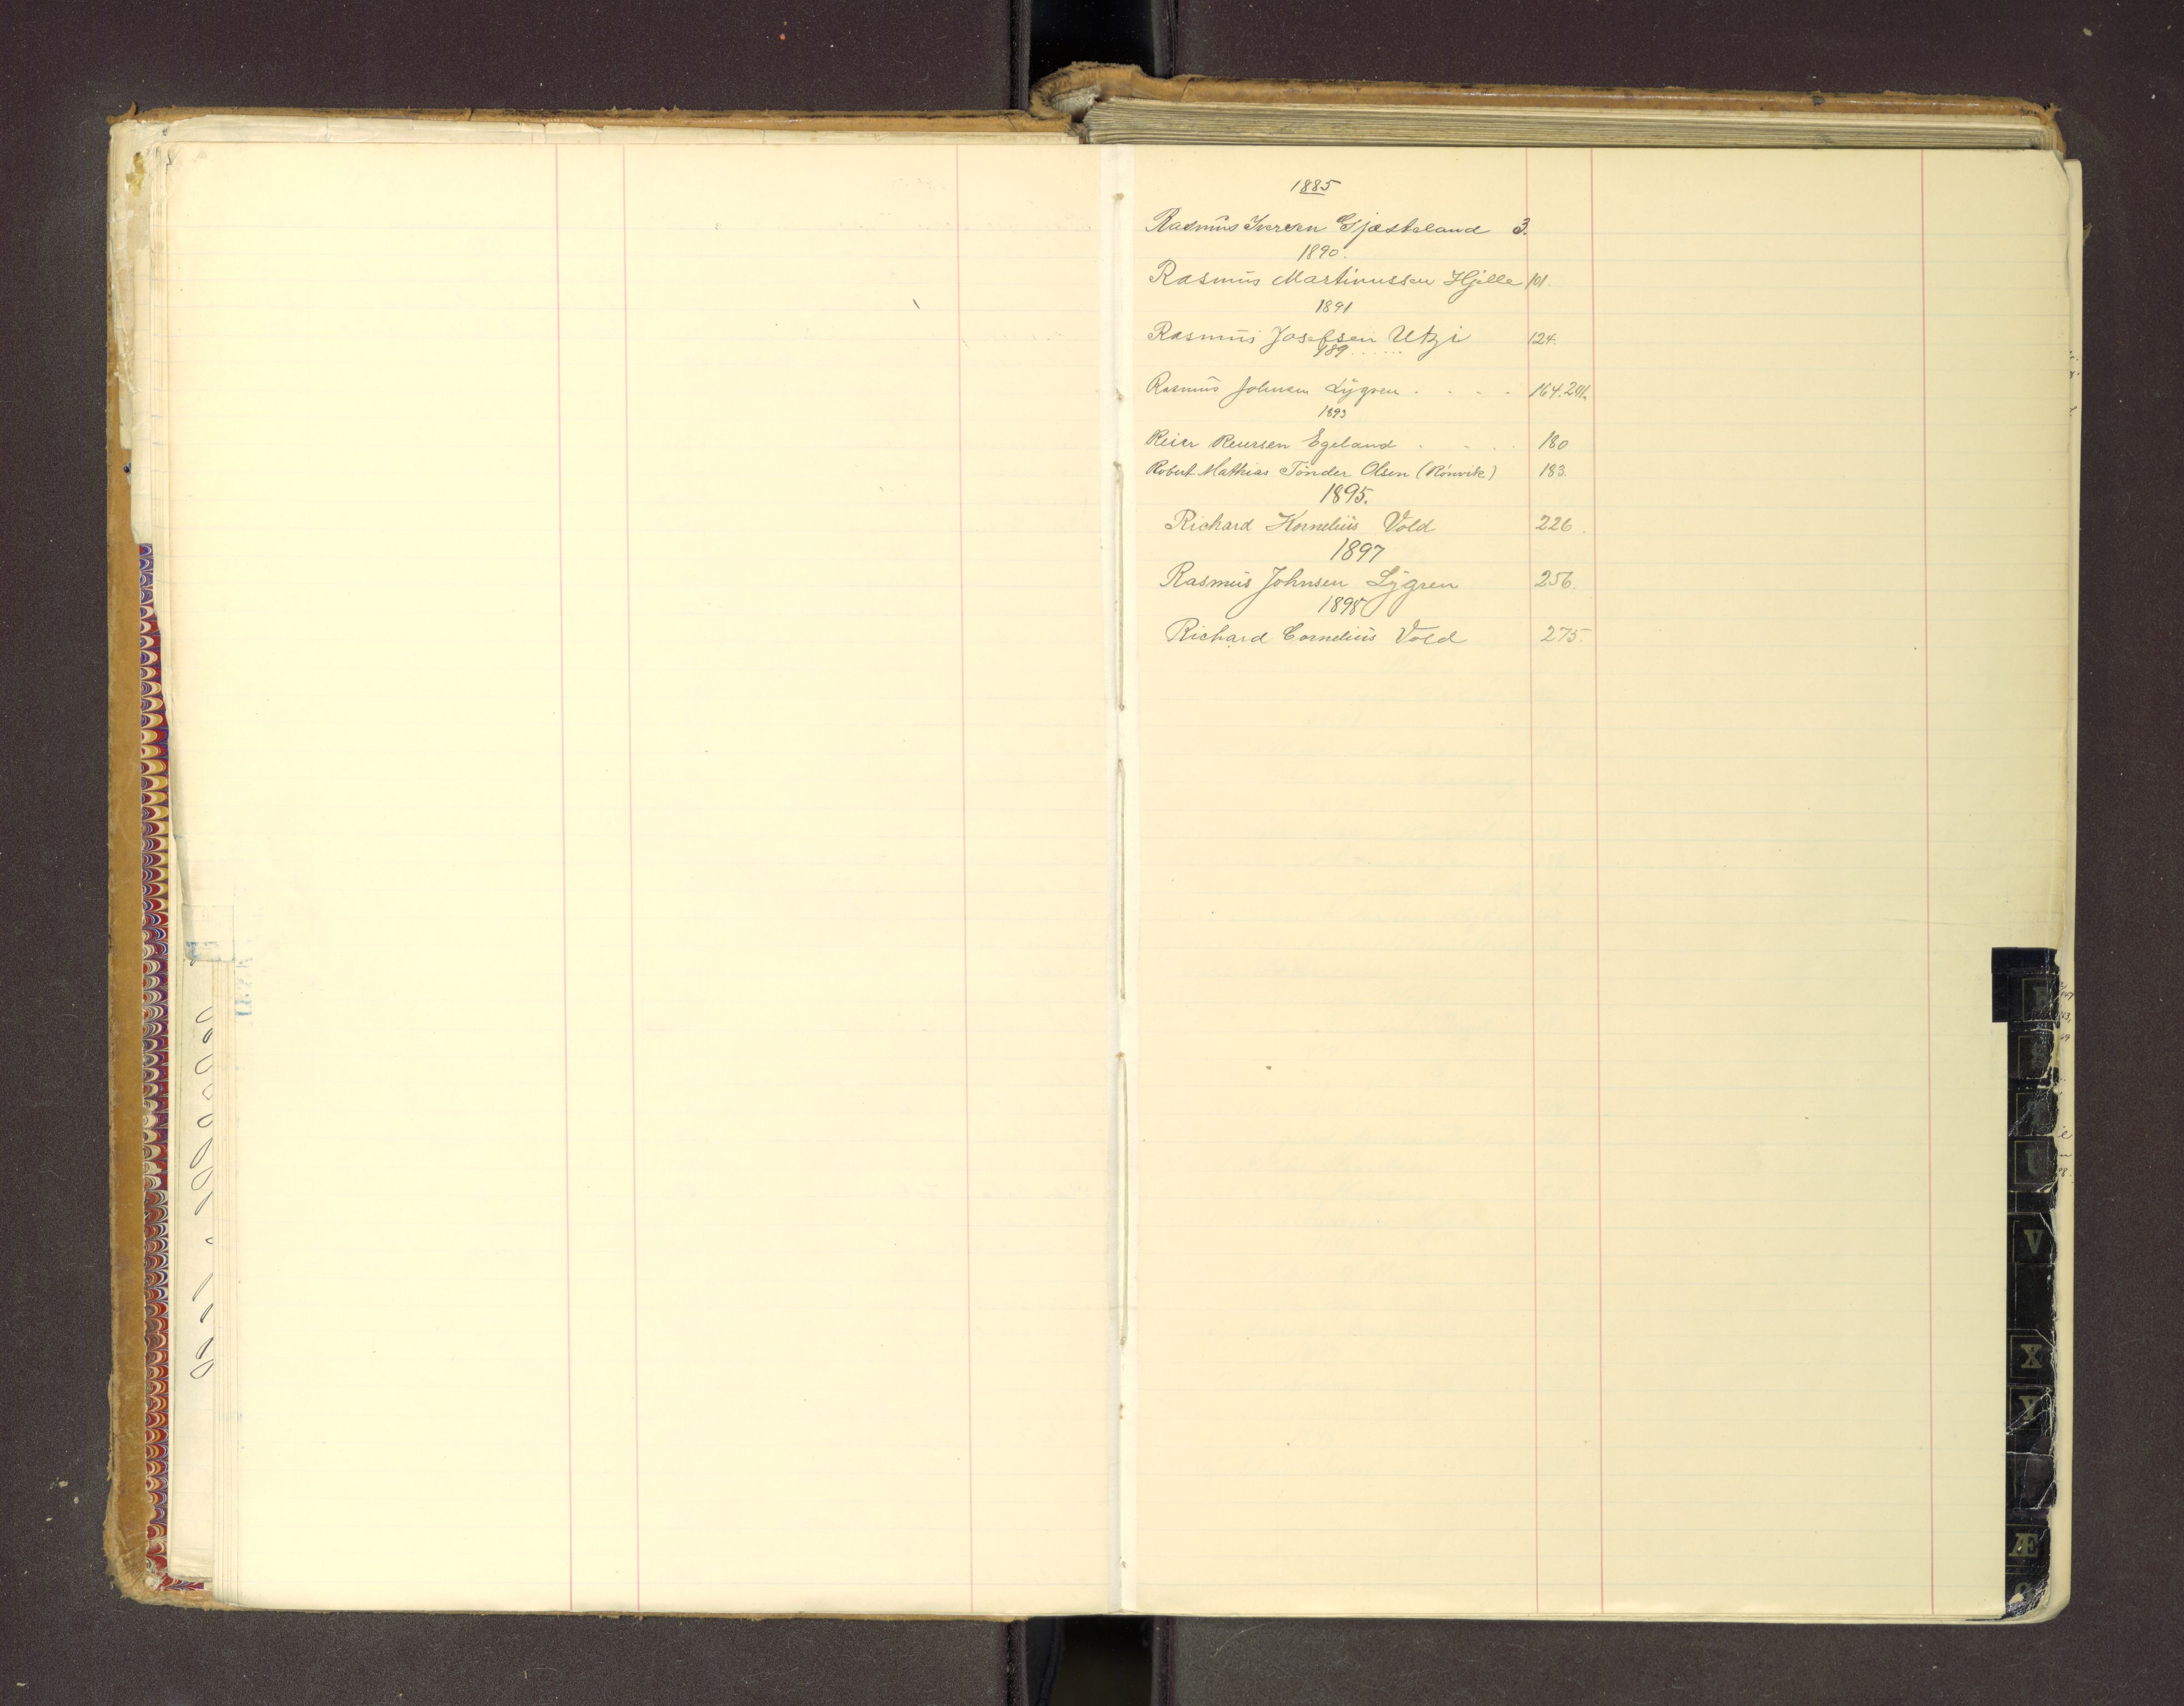 1885
Rasmus Iversen Gjæsteland 3.
1890.
Rasmus Martinussen Hjelle 101.
1891
Rasmus Josefsen Utzi 124.
189......
Rasmus Johnsen Lygren . . . . 164.201.
1893
Reier Reiersen Egeland . . . 180
Robert Mathias Tønder Olsen (Rønvik) 183.
1895.
Richard Kornelius Vold 226.
1897
Rasmus Johnsen Lygren 256.
1898
Richard Cornelius Vold 275.
R
U
V
X
Y
Æ